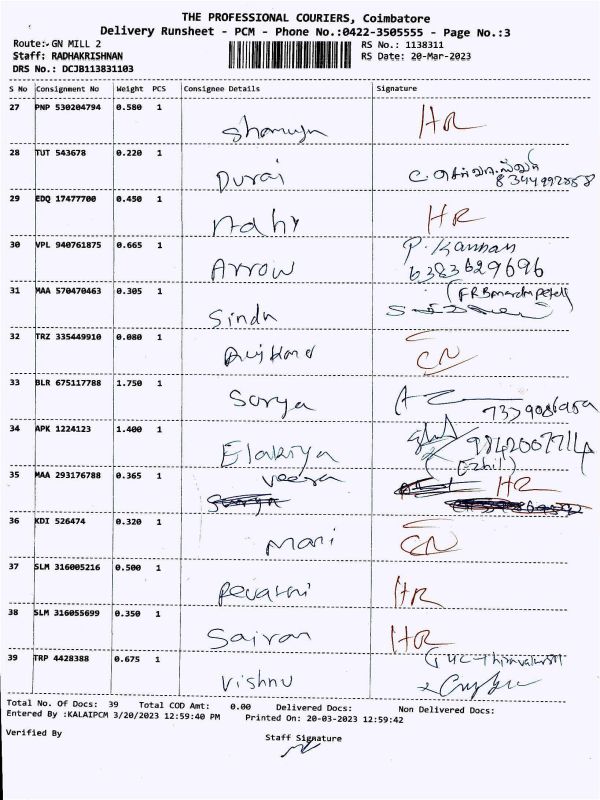 THE PROFESSIONAL COURIERS, Coimbatore
Delivery Runsheet - PCM - Phone No.:0422-3505555 - Page No.:3
Route:- GN MILL 2 RS No.: 1138311
Staff: RADHAKRISHNAN RS Date: 20-Mar-2023
DRS No.: DCJB113831103
S No Consignment No Weight PCS Consignee Details Signature
27 PNP 530204794 0.580 1 HR
28 TUT 543678 0.220 1 Durai
29 EDQ 17477700 0.450 1 HR
30 VPL 940761875 0.665 1 Arrow P. Kannan
6383629696
31 MAA 570470463 0.305 1 Sindu
32 TRZ 335449910 0.080 1 CN
33 BLR 675117788 1.750 1 Sorya
34 APK 1224123 1.400 1 Elakiya 9842007714
(Ezhil)
35 MAA 293176788 0.365 1 veera HR
36 KDI 526474 0.320 1 Mari CN
37 SLM 316005216 0.500 1 Revathi HR
38 SLM 316055699 0.350 1 Sairam HR
39 TRP 4428388 0.675 1 Vishnu
Total No. Of Docs: 39 Total COD Amt: 0.00 Delivered Docs: Non Delivered Docs:
Entered By :KALAIPCM 3/20/2023 12:59:40 PM Printed On: 20-03-2023 12:59:42
Verified By Staff Signature